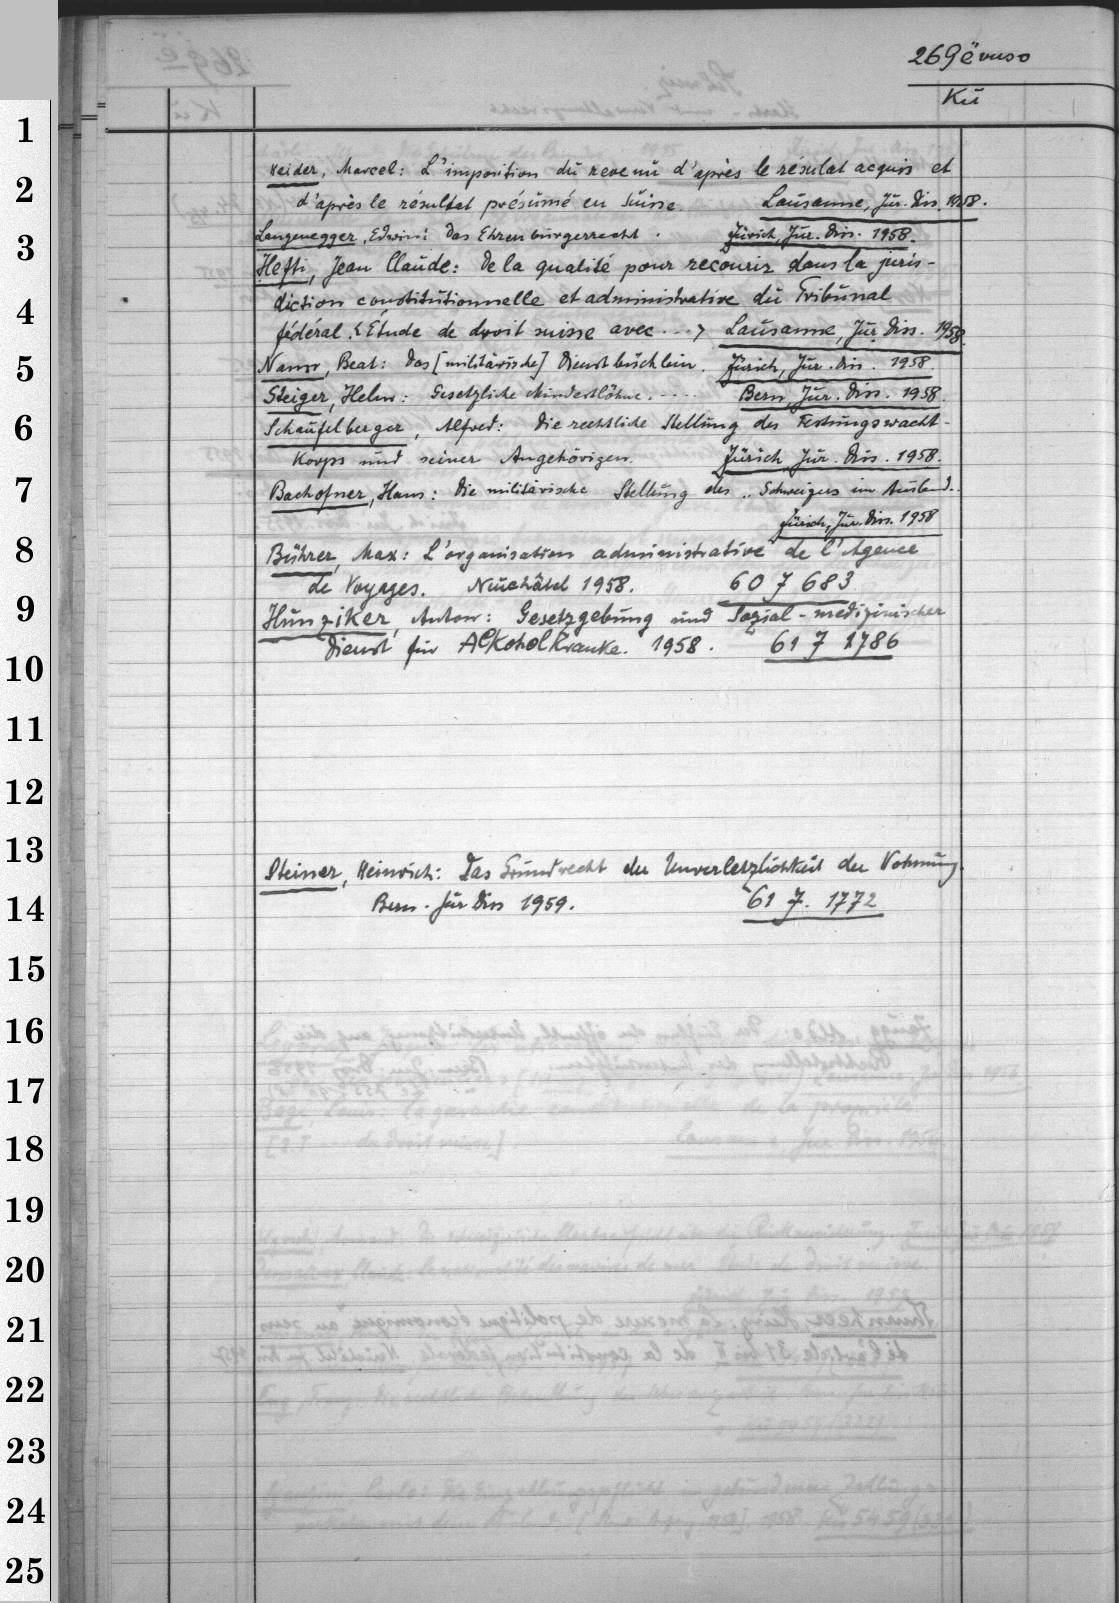 269ë verso
Kü
1
Heider, Marcel: L'imposition du revenu d'après le résulat acquis et
2
d'après le résultat présumé en Suisse. Lausanne, Jur. Dis. 1958.
Langenegger, Edwin: Das Ehrenbürgerrecht. Zürich, Jur. Diss. 1958.
3
Hefti, Jean Claude: De la qualité pour recourir dans la juris-
diction constitutionnelle et administrative du Tribunal
4
fédéral. < Étude de droit suisse avec ... > Lausanne, Jur. Diss. 1958.
5
Beat: Das [militärische] Dienstbüchlein. Zürich, Jur. Diss. 1958.
Steiger, Helm: Gesetzliche Mindestlöhne. .... Bern, Jur. Diss. 1958.
6
Schaufelberger, Alfred: Die rechtliche Stellung des Festungswacht-
Korps und seiner Angehörigen. Zürich, Jur. Diss. 1958.
7
Bachofner, Hans: Die militärische Stellung des .. Schweizers im Ausland.
Zürich, Jur. Diss. 1958
8
Bührer, Max: L'organisation administrative de l'Agence
de Voyages. Neuchâtel 1958. 607 683
9
Hunziker, Anton: Gesetzgebung und Sozial-medizinischer
Dienst für Alkoholkranke. 1958. 61 7 1786
10
11
12
13
Steiner, Heinrich: Das Grundrecht der Unverletzlichkeit der Wohnung.
14
Bern. Jur Diss 1959. 61 7. 1772
15
16
17
18
19
20
21
22
23
24
25